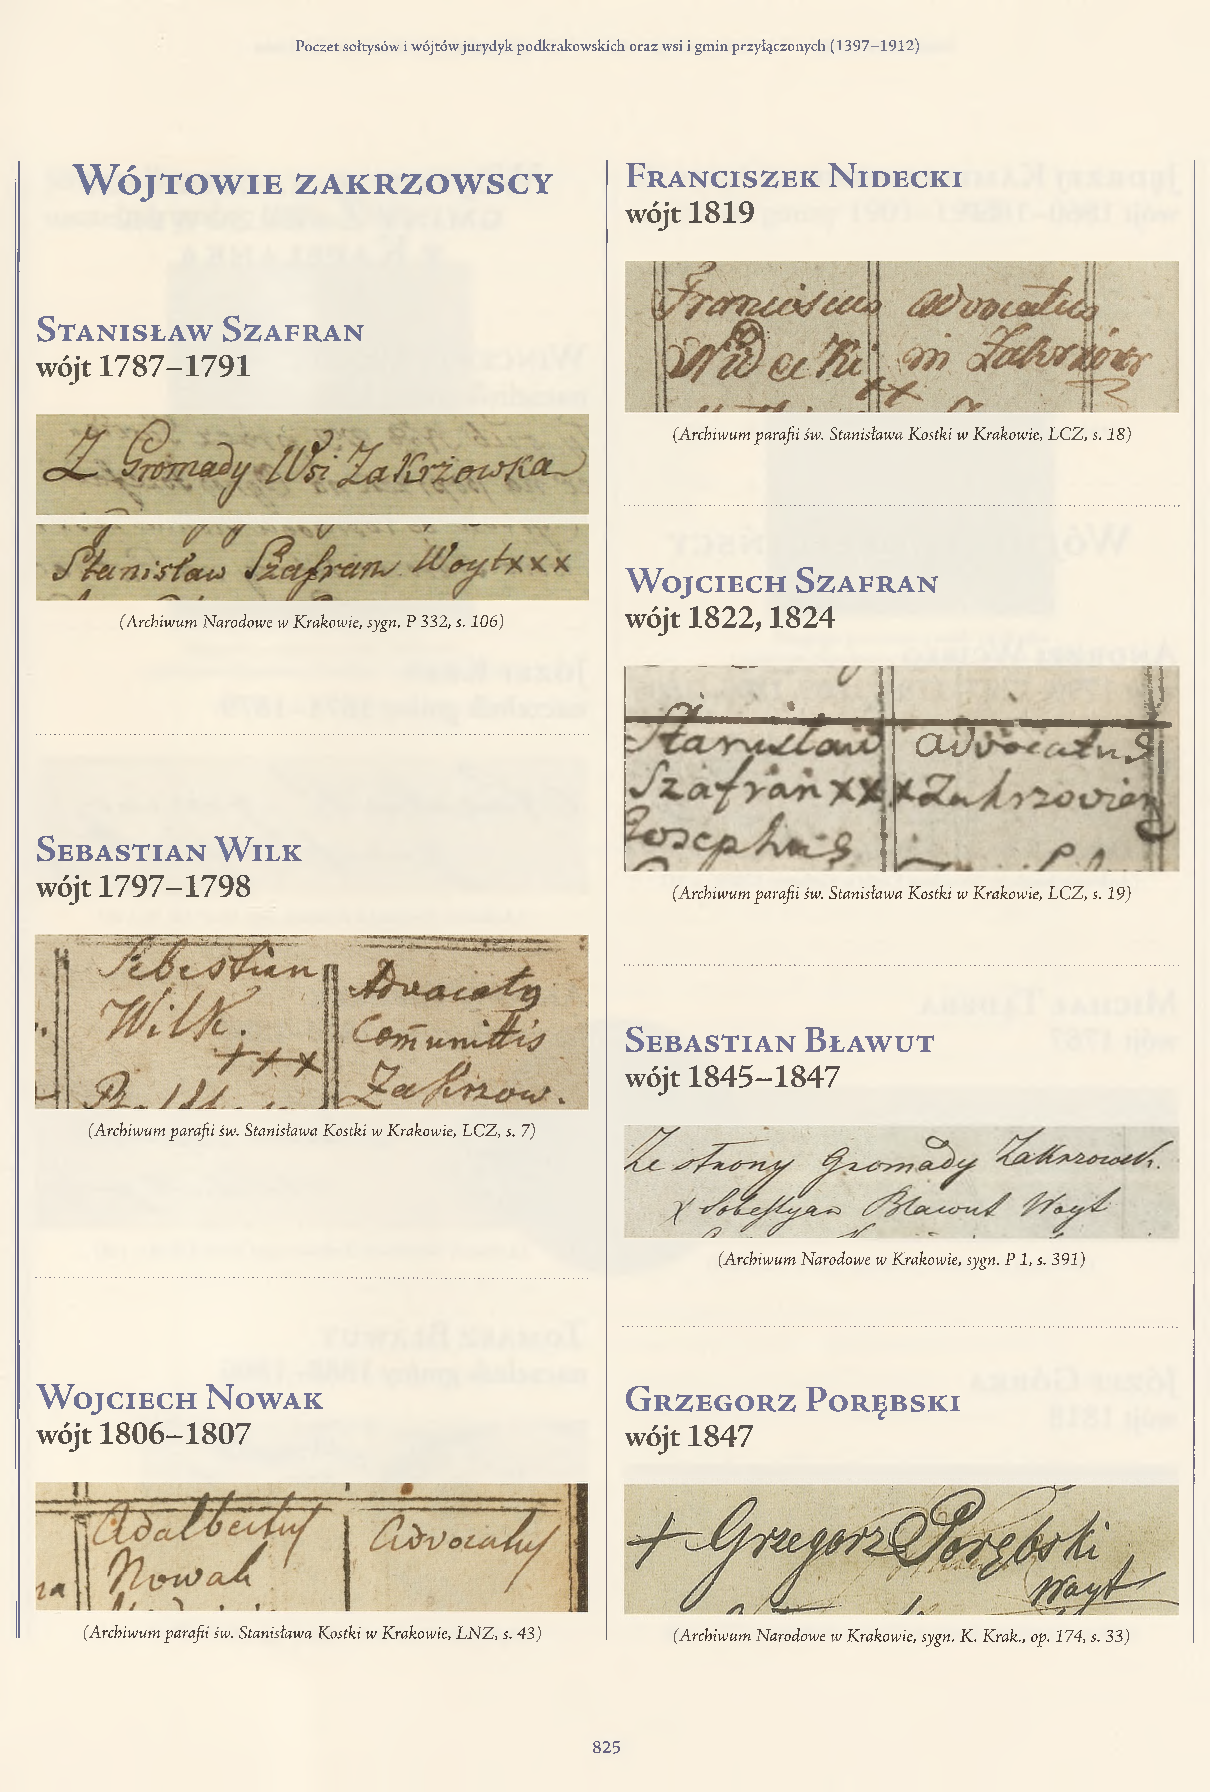 Poczet sołtysów i wójtów jurydyk podkrakowskich oraz wsi i gmin przyłączonych (1397–1912)
Wójtowie zakrzowscy
Stanisław Szafran
wójt 1787–1791
Z Gromady Wsi Zakrzowka
Stanisław Szafran Woyt xxx
(Archiwum Narodowe w Krakowie, sygn. P 332, s. 106)
Sebastian Wilk
wójt 1797–1798
Sebestian
Wilk.
+++
Advocatq
Comunittis
Zakrzow.
(Archiwum parafii św. Stanisława Kostki w Krakowie, LCZ, s. 7)
Wojciech Nowak
wójt 1806–1807
Adalbertus Advocatus
Nowak
(Archiwum parafii św. Stanisława Kostki w Krakowie, LNZ, s. 43)
Franciszek Nidecki
wójt 1819
Franciscus advocatus
Nidecki in
xx
(Archiwum parafii św. Stanisława Kostki w Krakowie, LCZ, s. 18)
Wojciech Szafran
wójt 1822, 1824
Stanislaus advocatus
Szafran xxx
Josephus
(Archiwum parafii św. Stanisława Kostki w Krakowie, LCZ, s. 19)
Sebastian Bławut
wójt 1845–1847
Ze strony Gromady Zakrzowek.
x Sobestyan Blawut Woyt
(Archiwum Narodowe w Krakowie, sygn. P 1, s. 391)
Grzegorz Porębski
wójt 1847
+ Grzegorz Porębski
Woyt
(Archiwum Narodowe w Krakowie, sygn. K. Krak., op. 174, s. 33)
825